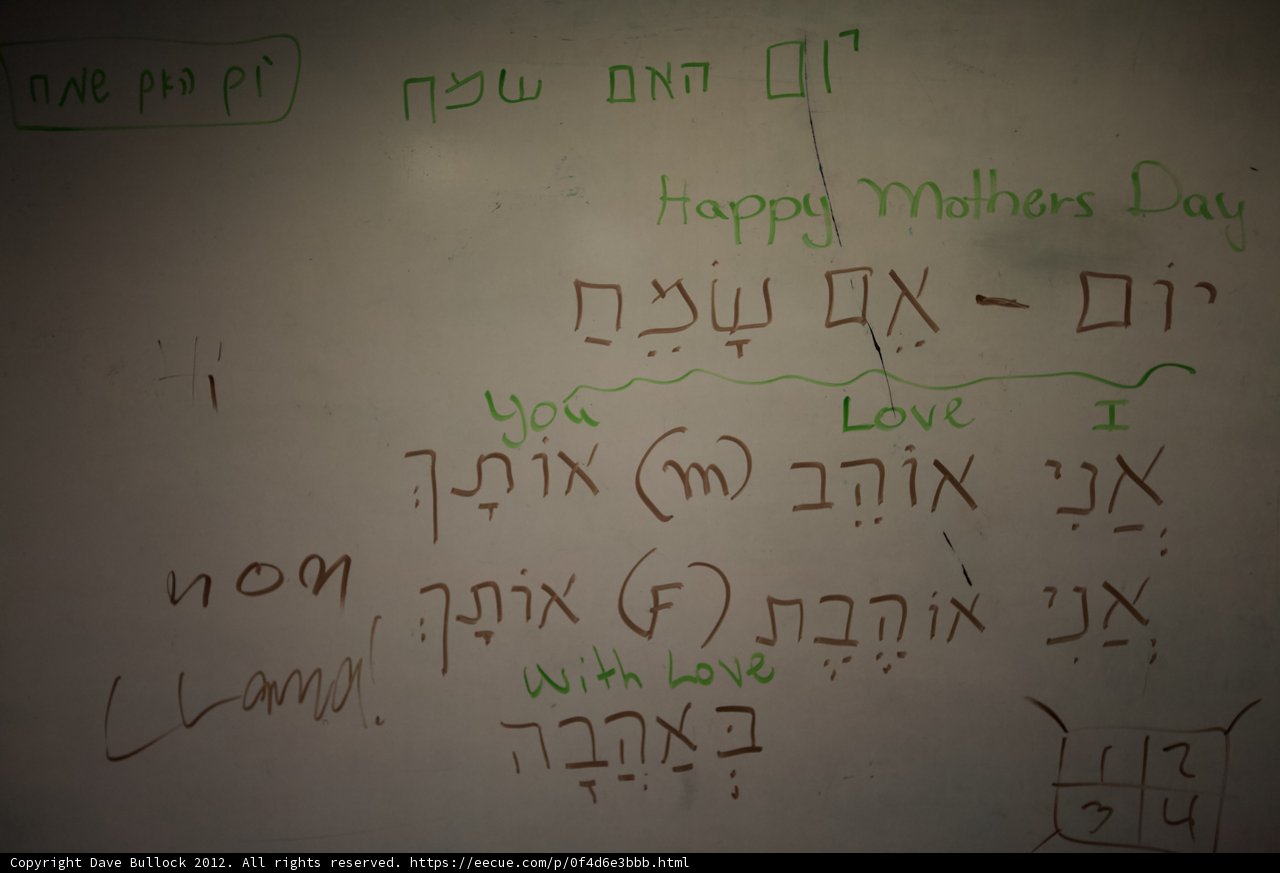 יום האם שמח
יום האם שמח
Happy Mothers Day
יוֹם – אֵם שָׂמֵחַ
I Love You
אֲנִי אוֹהֵב (m) אוֹתָךְ
אֲנִי אוֹהֶבֶת (F) אוֹתָךְ
With Love
בְּאַהֲבָה
Hi
nom
LLama!
1 2
3 4
Copyright Dave Bullock 2012. All rights reserved. https://eecue.com/p/0f4d6e3bbb.html